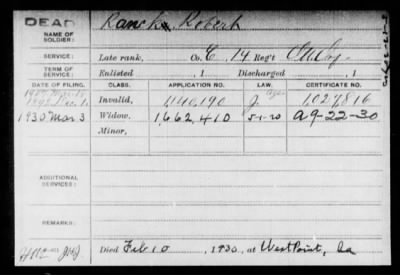 DEAD
NAME OF SOLDIER:
Rauch, Robert
SERVICE:
Late rank, Co. E, 14 Reg't
TERM OF SERVICE:
Enlisted , 1 Discharged , 1
DATE OF FILING. CLASS. APPLICATION NO. LAW. CERTIFICATE NO.
Invalid, 1,140,190 1,027,816
1930 Mar 3 Widow, 1,662,410 5-1-20 A 9-22-30
Minor,
ADDITIONAL SERVICES:
REMARKS:
Died Feb 10, 1930, at West Point, Ia